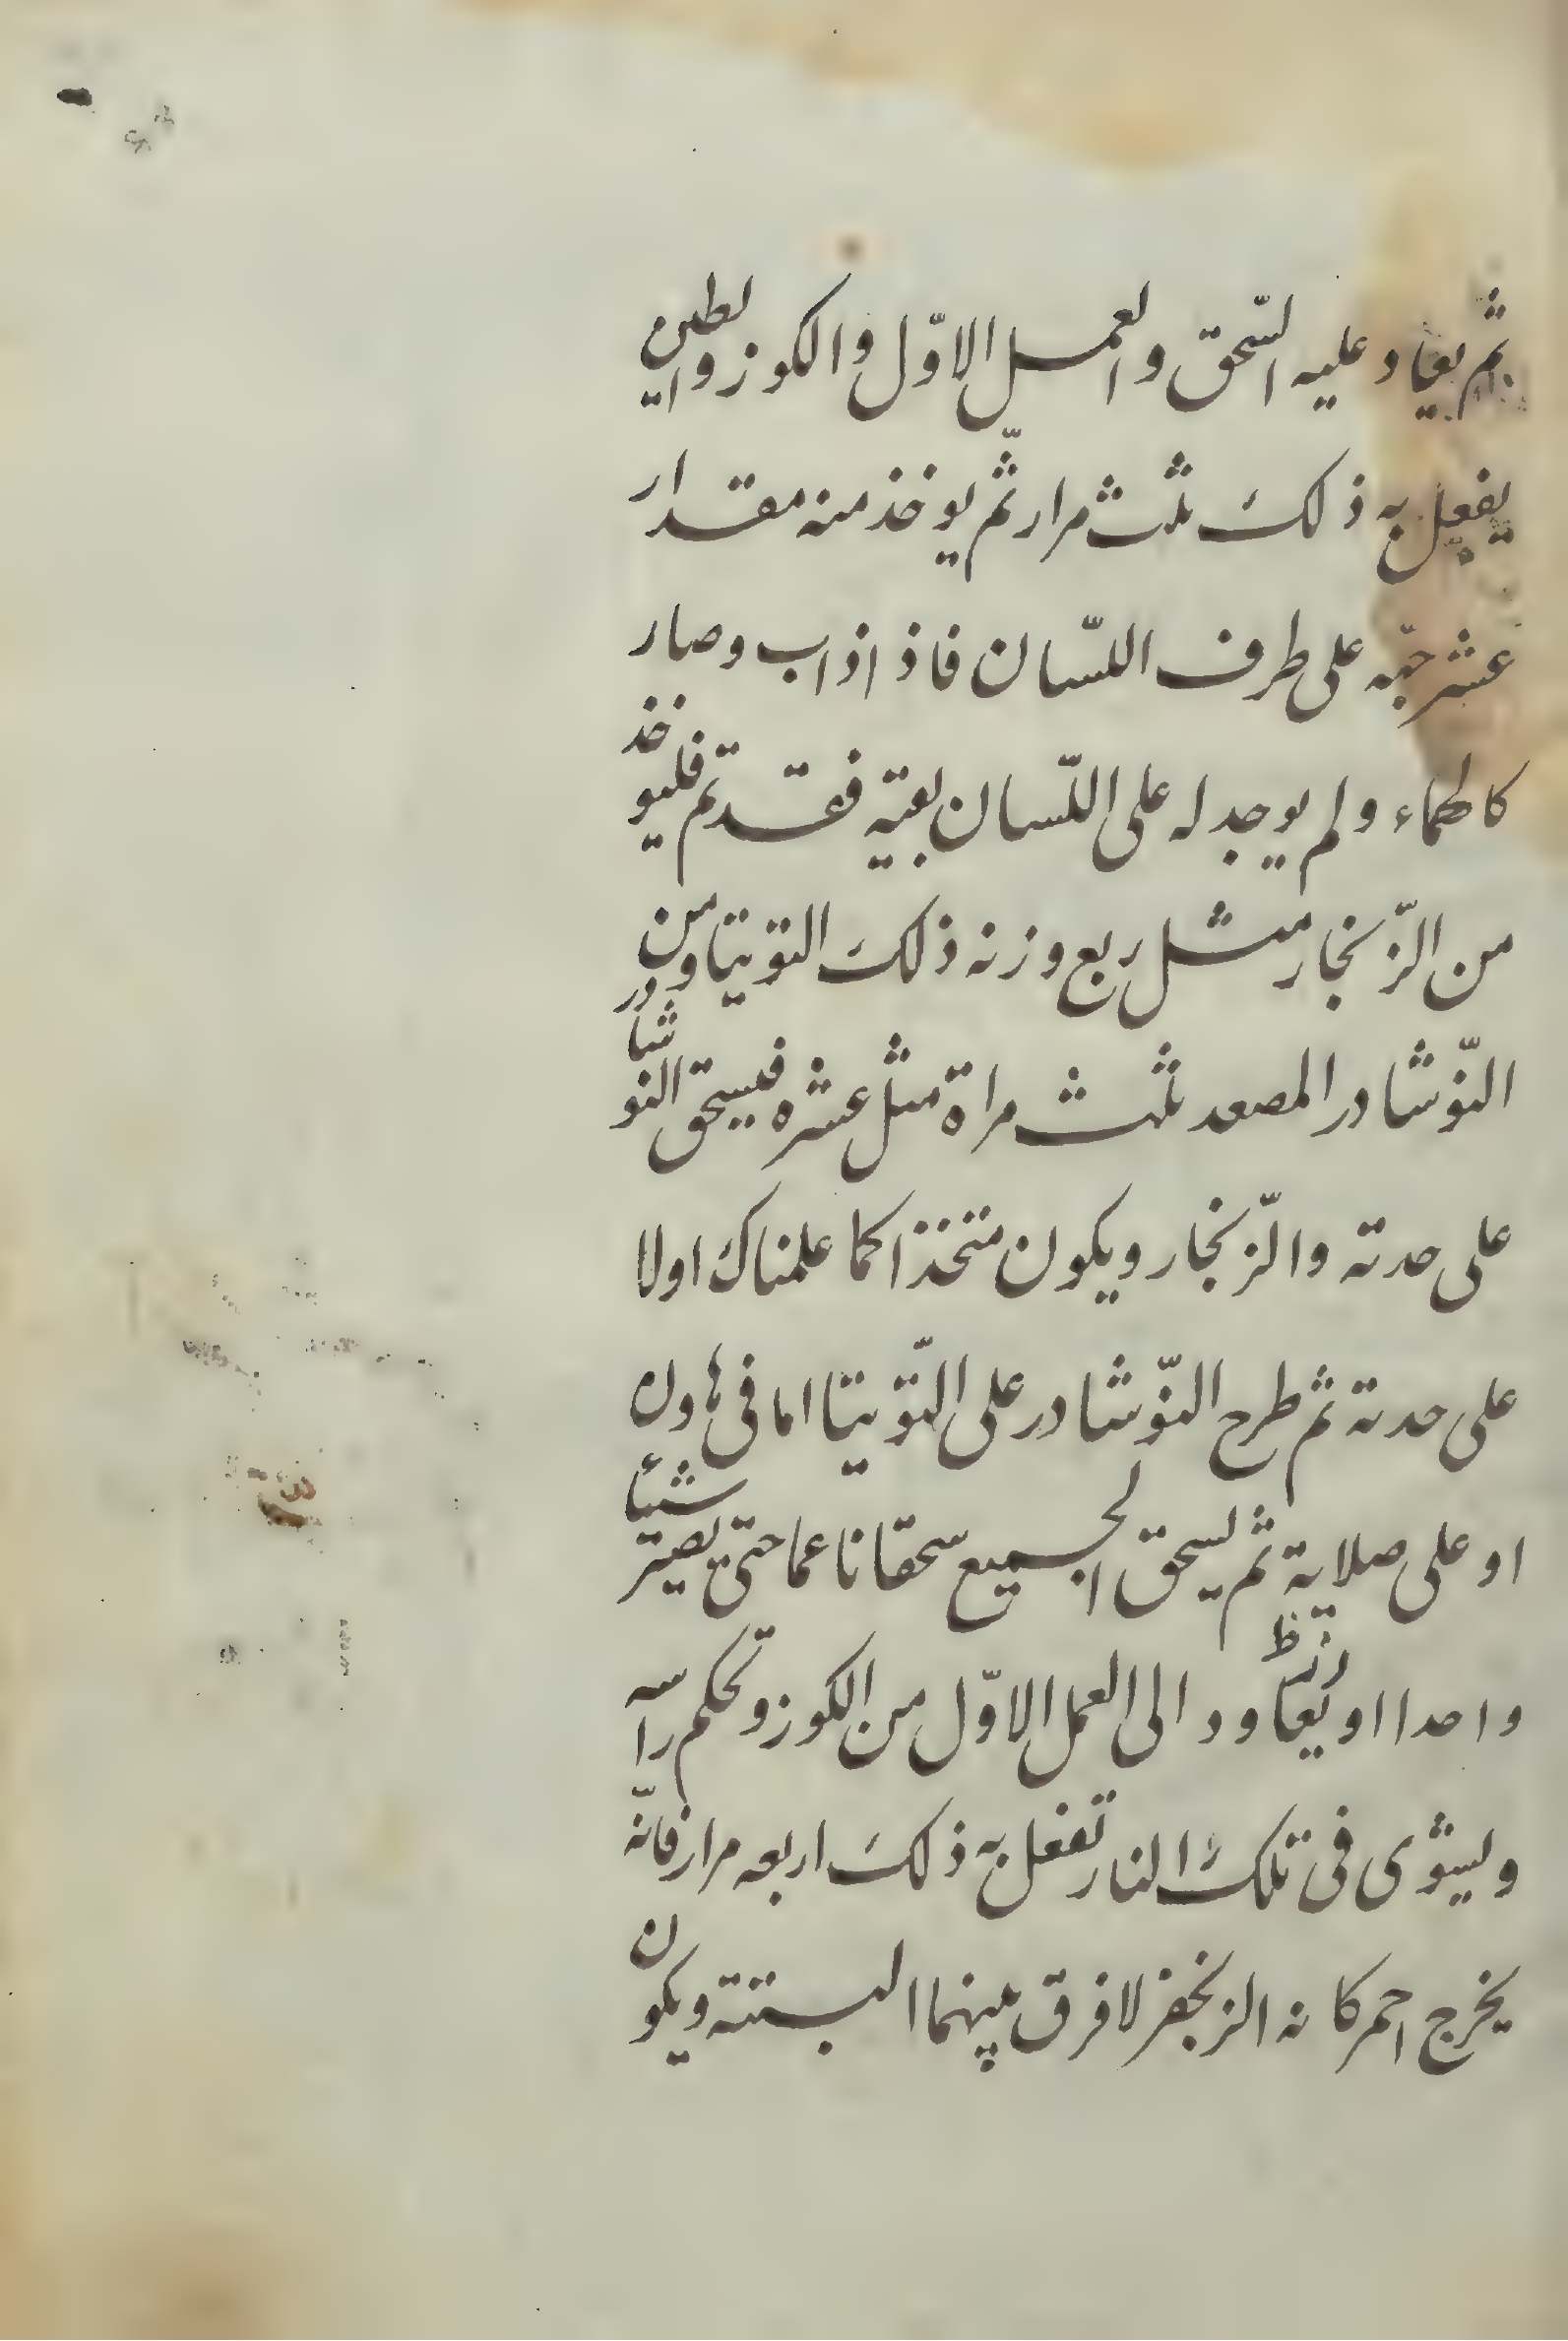 ثم يعاد عليه السّحق والعمل الاوّل والكوز والطين
يفعل به ذلك ثلث مرار ثمّ يوخذ منه مقدار
عشر حبّه على طرف اللسّان فاذا ذاب وصار
كالماء ولم يوجد له على اللّسان بقيّه فقد تم فليوخذ
من الزّنجار مثل ربع وزنه ذلك التوتيا ومن
النّوشادر المصعد ثلث مراة مثل عشره فيسحق النوشادر
على حدته والزّنجار ويكون متخذا كما علمناك اولا
على حدته ثم طرح النّوشادر على التّوتيا اما فى هاون
او على صلاية ثم يسحق الجميع سحقا ناعما حتى يصير شيئا
واحدا او يعاود الى العمل الاوّل من الكوز وتحكم راسه
ويشوى فى تلك النار تفعل به ذلك اربعه مرار فانّه
يخرج احمر كانه الزنجفر لا فرق بينهما البتة ويكون